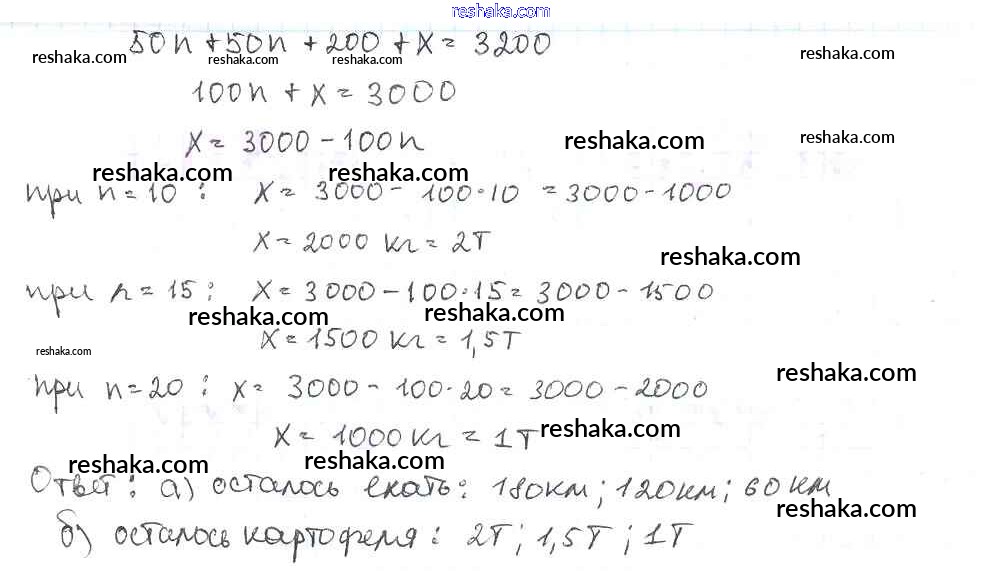 reshaka.com
50n + 50n + 200 + x = 3200
reshaka.com reshaka.com reshaka.com reshaka.com
100n + x = 3000
x = 3000 - 100n
reshaka.com reshaka.com
reshaka.com reshaka.com
при n = 10 : x = 3000 - 100·10 = 3000 - 1000
x = 2000 кг = 2т
reshaka.com
при n = 15 : x = 3000 - 100·15 = 3000 - 1500
reshaka.com reshaka.com
x = 1500 кг = 1,5т
reshaka.com
reshaka.com
при n = 20 : x = 3000 - 100·20 = 3000 - 2000
x = 1000 кг = 1т
reshaka.com
reshaka.com reshaka.com
Ответ: а) осталось ехать: 180км; 120км; 60км
reshaka.com
б) осталось картофеля: 2т; 1,5т; 1т